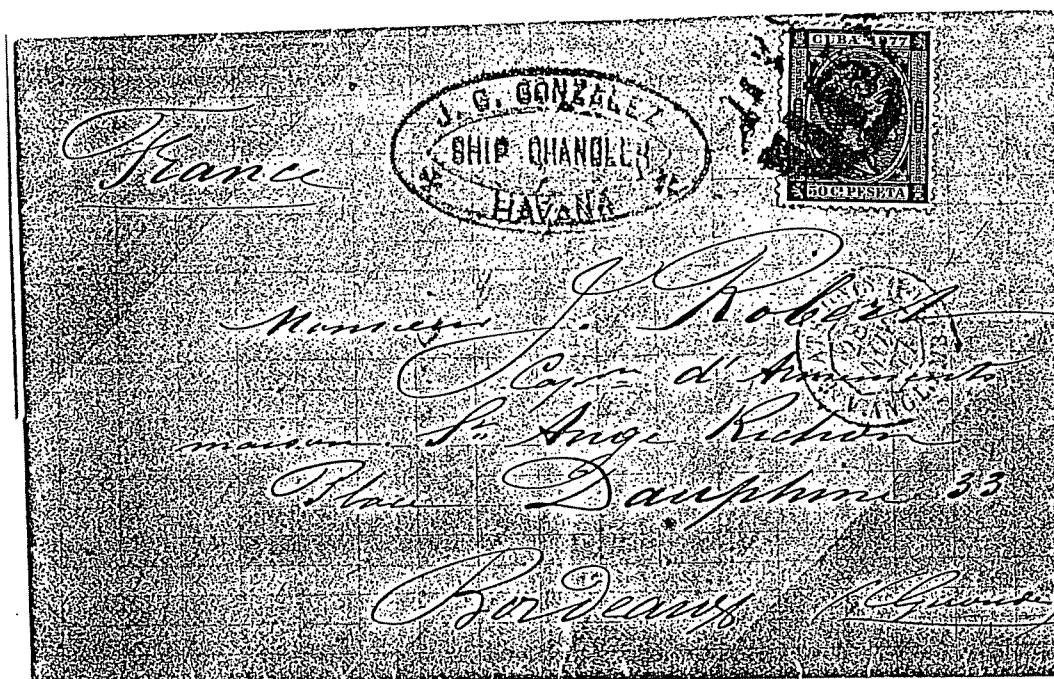 CUBA 1977
50 C. PESETA
J. G. GONZALEZ
SHIP CHANDLER
HAVANA
France
Monsieur J. Robert
Capne d'Armements
maison St. Ange Richon
Place Dauphine 33
Bordeaux
V. ANGL.